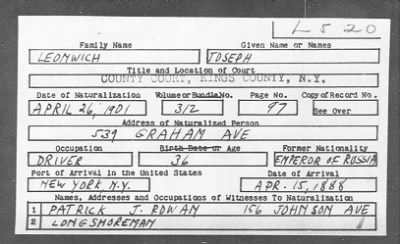 L520
Family Name Given Name or Names
LEONWICH JOSEPH
Title and Location of Court
COUNTY COURT, KINGS COUNTY, N.Y.
Date of Naturalization Volume or Bundle No. Page No. Copy of Record No.
APRIL 26, 1901 312 97 See Over
Address of Naturalized Person
539 GRAHAM AVE
Occupation Birth Date or Age Former Nationality
DRIVER 36 EMPEROR OF RUSSIA
Port of Arrival in the United States Date of Arrival
NEW YORK N.Y. APR. 15, 1888
Names, Addresses and Occupations of Witnesses To Naturalization
1 PATRICK J. ROWAN 156 JOHNSON AVE
2 LONGSHOREMAN